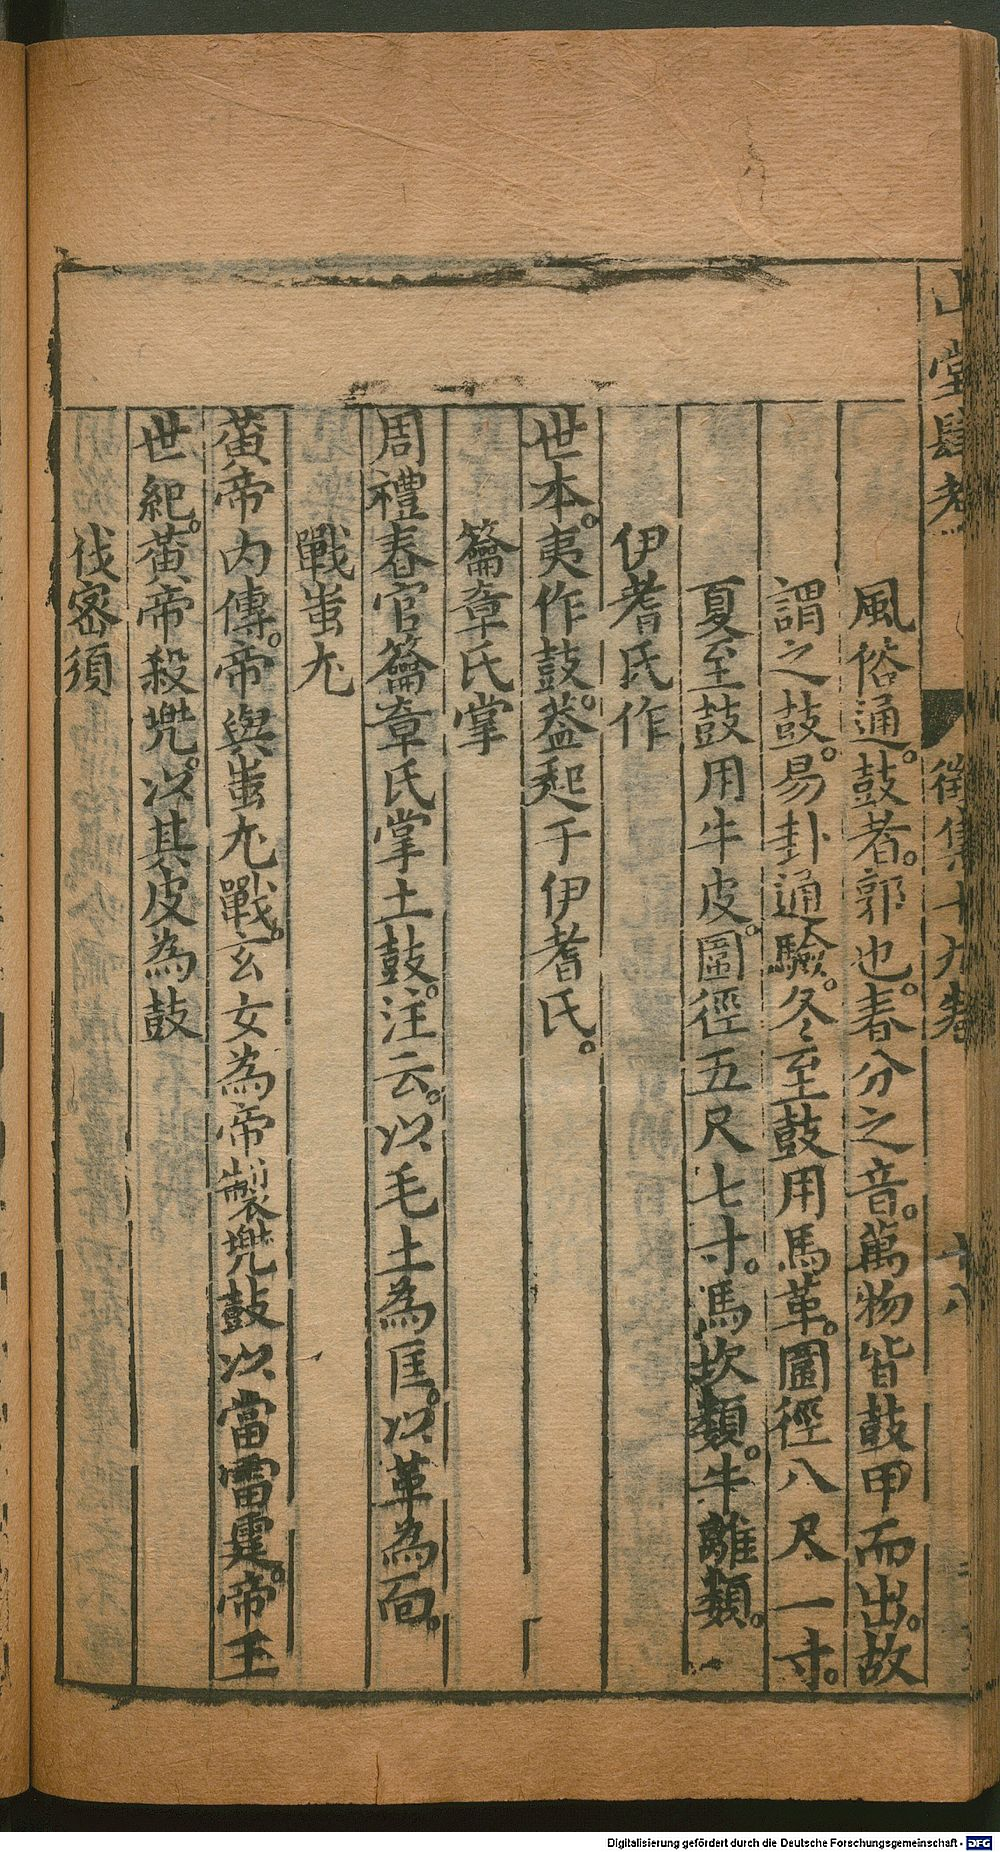 山堂肆考 徵集十九卷 十八
風俗通。鼓者。郭也。春分之音。萬物皆鼓甲而出。故
謂之鼓。易卦通驗。冬至鼓用馬革。圓徑八尺一寸。
夏至鼓用牛皮。圓徑五尺七寸。馬坎類。牛離類。
伊耆氏作
世本。夷作鼓。葢起于伊耆氏。
籥章氏掌
周禮春官籥章氏掌土鼓。注云。以毛土為匡。以革為面。
戰蚩尤
黃帝內傳。帝與蚩尤戰。玄女為帝製夔鼓以當雷霆。帝王
世紀。黃帝殺夔。以其皮為鼓
伐密須
Digitalisierung gefördert durch die Deutsche Forschungsgemeinschaft - DFG